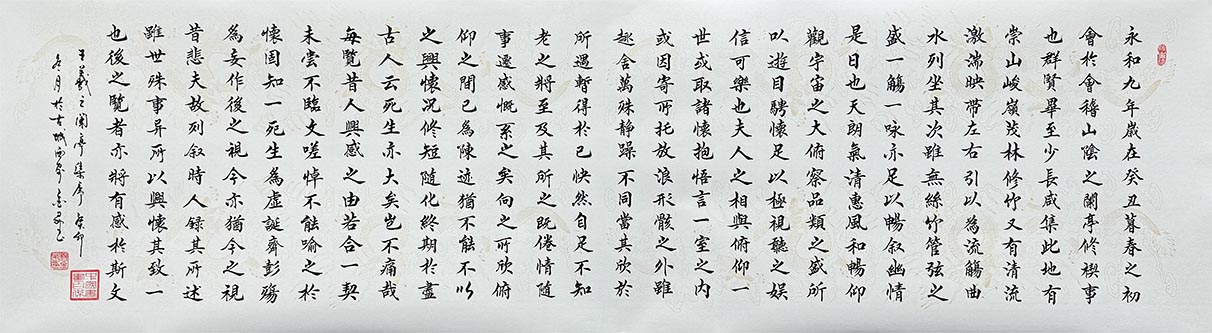 永和九年歲在癸丑暮春之初
會於會稽山陰之蘭亭修禊事
也群賢畢至少長咸集此地有
崇山峻嶺茂林修竹又有清流
激湍映帶左右引以為流觴曲
水列坐其次雖無絲竹管弦之
盛一觴一咏亦足以暢叙幽情
是日也天朗氣清惠風和暢仰
觀宇宙之大俯察品類之盛所
以遊目騁懷足以極視聽之娛
信可樂也夫人之相與俯仰一
世或取諸懷抱悟言一室之内
或因寄所托放浪形骸之外雖
趣舍萬殊静躁不同當其欣於
所遇暫得於己快然自足不知
老之將至及其所之既倦情隨
事遷感慨系之矣向之所欣俯
仰之間已為陳迹猶不能不以
之興懷況修短隨化終期於盡
古人云死生亦大矣豈不痛哉
每覽昔人興感之由若合一契
未嘗不臨文嗟悼不能喻之於
懷固知一死生為虛誕齊彭殤
為妄作後之視今亦猶今之視
昔悲夫故列叙時人録其所述
雖世殊事异所以興懷其致一
也後之覽者亦將有感於斯文
王羲之蘭亭集序癸卯
冬月於古城